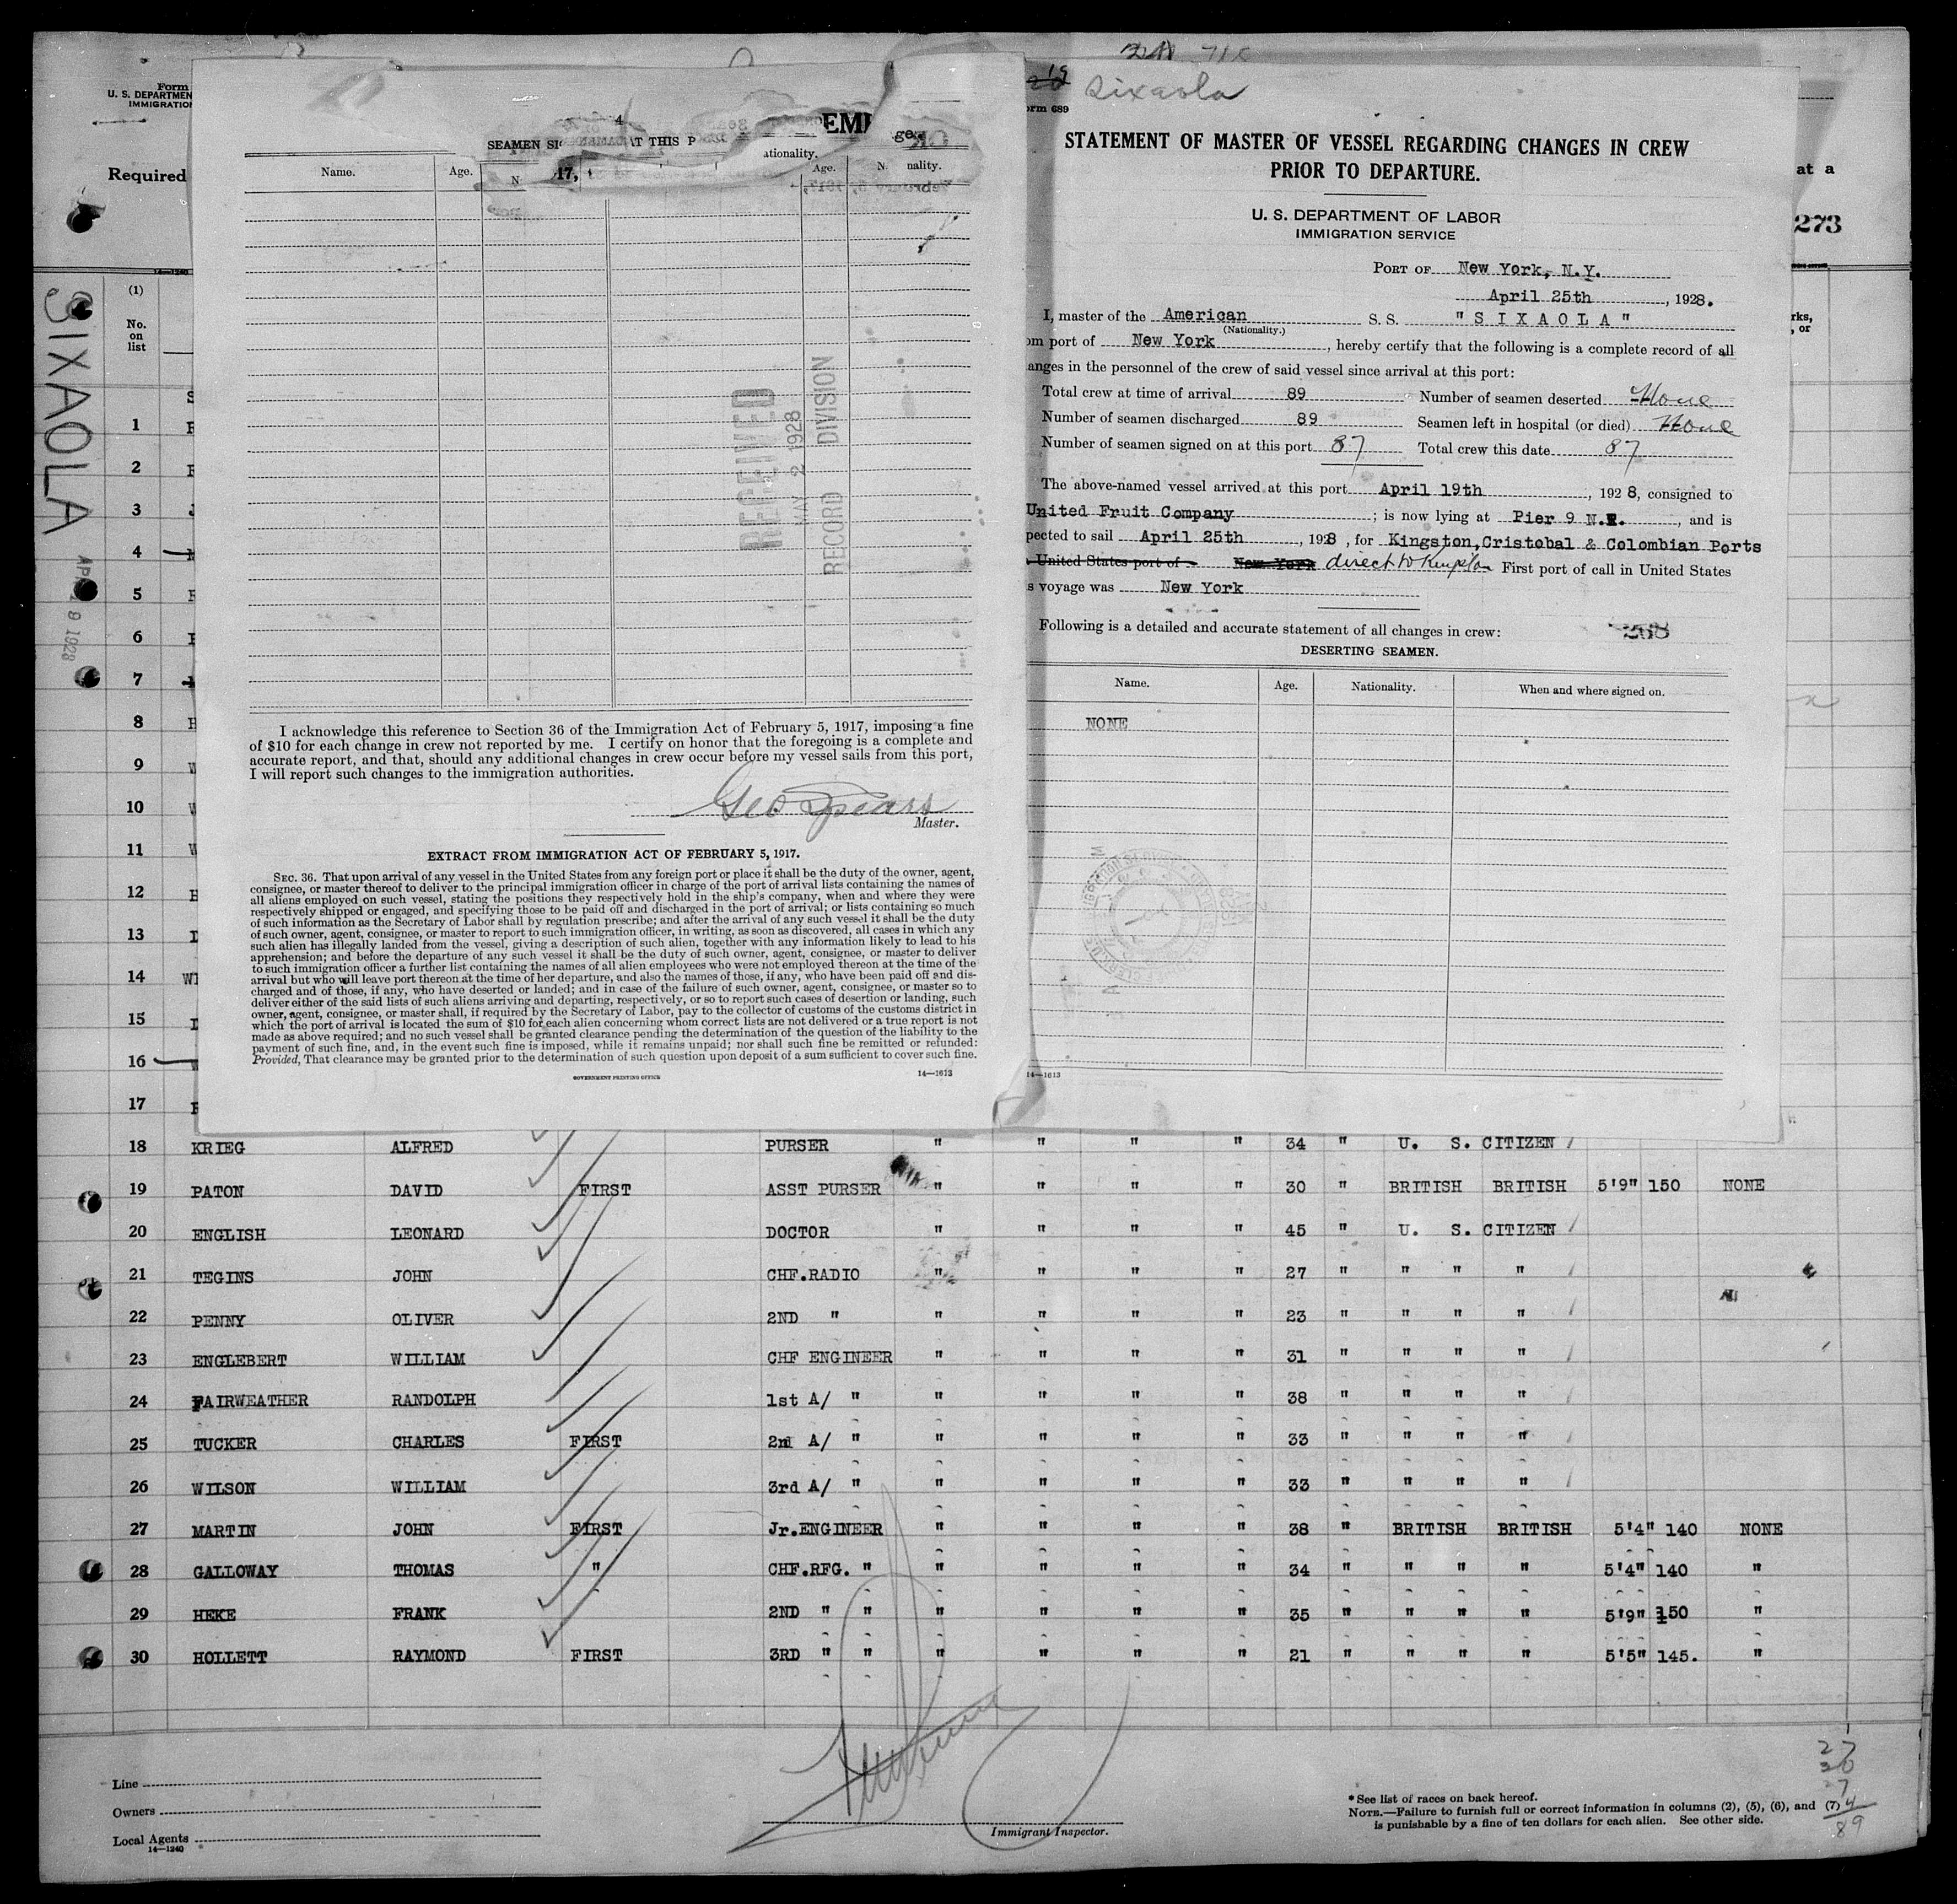 Sixaola
Form
U. S. DEPARTMEN
IMMIGRATION
Required
at a
273
(1)
No.
on
list
SIXAOLA
SEAMEN SI
AT THIS P
EMP
Name.
Age.
ationality.
Age.
nality.
RECEIVED
MAY 2 1928
RECORD DIVISION
I acknowledge this reference to Section 36 of the Immigration Act of February 5, 1917, imposing a fine
of $10 for each change in crew not reported by me. I certify on honor that the foregoing is a complete and
accurate report, and that, should any additional changes in crew occur before my vessel sails from this port,
I will report such changes to the immigration authorities.
Geo Spears
Master.
EXTRACT FROM IMMIGRATION ACT OF FEBRUARY 5, 1917.
SEC. 36. That upon arrival of any vessel in the United States from any foreign port or place it shall be the duty of the owner, agent,
consignee, or master thereof to deliver to the principal immigration officer in charge of the port of arrival lists containing the names of
all aliens employed on such vessel, stating the positions they respectively hold in the ship's company, when and where they were
respectively shipped or engaged, and specifying those to be paid off and discharged in the port of arrival; or lists containing so much
of such information as the Secretary of Labor shall by regulation prescribe; and after the arrival of any such vessel it shall be the duty
of such owner, agent, consignee, or master to report to such immigration officer, in writing, as soon as discovered, all cases in which any
such alien has illegally landed from the vessel, giving a description of such alien, together with any information likely to lead to his
apprehension; and before the departure of any such vessel it shall be the duty of such owner, agent, consignee, or master to deliver
to such immigration officer a further list containing the names of all alien employees who were not employed thereon at the time of the
arrival but who will leave port thereon at the time of her departure, and also the names of those, if any, who have been paid off and dis-
charged and of those, if any, who have deserted or landed; and in case of the failure of such owner, agent, consignee, or master so to
deliver either of the said lists of such aliens arriving and departing, respectively, or so to report such cases of desertion or landing, such
owner, agent, consignee, or master shall, if required by the Secretary of Labor, pay to the collector of customs of the customs district in
which the port of arrival is located the sum of $10 for each alien concerning whom correct lists are not delivered or a true report is not
made as above required; and no such vessel shall be granted clearance pending the determination of the question of the liability to the
payment of such fine, and, in the event such fine is imposed, while it remains unpaid; nor shall such fine be remitted or refunded:
Provided, That clearance may be granted prior to the determination of such question upon deposit of a sum sufficient to cover such fine.
GOVERNMENT PRINTING OFFICE
14—1613
orm 689
STATEMENT OF MASTER OF VESSEL REGARDING CHANGES IN CREW
PRIOR TO DEPARTURE.
U. S. DEPARTMENT OF LABOR
IMMIGRATION SERVICE
PORT OF New York, N.Y.
April 25th, 1928.
I, master of the American S. S. "SIXAOLA"
(Nationality.)
om port of New York, hereby certify that the following is a complete record of all
anges in the personnel of the crew of said vessel since arrival at this port:
Total crew at time of arrival 89 Number of seamen deserted None
Number of seamen discharged 89 Seamen left in hospital (or died) None
Number of seamen signed on at this port 87 Total crew this date 87
The above-named vessel arrived at this port April 19th, 1928, consigned to
United Fruit Company; is now lying at Pier 9 N.R., and is
pected to sail April 25th, 1928, for Kingston,Cristobal & Colombian Ports
United States port of New York direct to Kingston First port of call in United States
s voyage was New York
Following is a detailed and accurate statement of all changes in crew:
268
DESERTING SEAMEN.
Name. Age. Nationality. When and where signed on.
NONE
14—1613
1
2
3
4
5
6
7
8
9
10
11
12
13
14
15
16
17
18 KRIEG ALFRED PURSER " " " " 34 " U. S. CITIZEN
19 PATON DAVID FIRST ASST PURSER " " " " 30 " BRITISH BRITISH 5'9" 150 NONE
20 ENGLISH LEONARD DOCTOR " " " " 45 " U. S. CITIZEN
21 TEGINS JOHN CHF.RADIO " " " " 27 " " " "
22 PENNY OLIVER 2ND " " " " " 23 " " " "
23 ENGLEBERT WILLIAM CHF ENGINEER " " " " 31 " " " "
24 FAIRWEATHER RANDOLPH 1st A/ " " " " " 38 " " " "
25 TUCKER CHARLES FIRST 2nd A/ " " " " " 33 " " " "
26 WILSON WILLIAM 3rd A/ " " " " " 33 " " " "
27 MARTIN JOHN FIRST Jr.ENGINEER " " " " 38 " BRITISH BRITISH 5'4" 140 NONE
28 GALLOWAY THOMAS " CHF.RFG. " " " " " 34 " " " " 5'4" 140 "
29 HEKE FRANK 2ND " " " " " " 35 " " " " 5'9" 150 "
30 HOLLETT RAYMOND FIRST 3RD " " " " " " 21 " " " " 5'5" 145. "
Line
Owners
Local Agents
14—1240
Immigrant Inspector.
* See list of races on back hereof.
NOTE.—Failure to furnish full or correct information in columns (2), (5), (6), and (7)
is punishable by a fine of ten dollars for each alien. See other side.
27
30
27
4
89